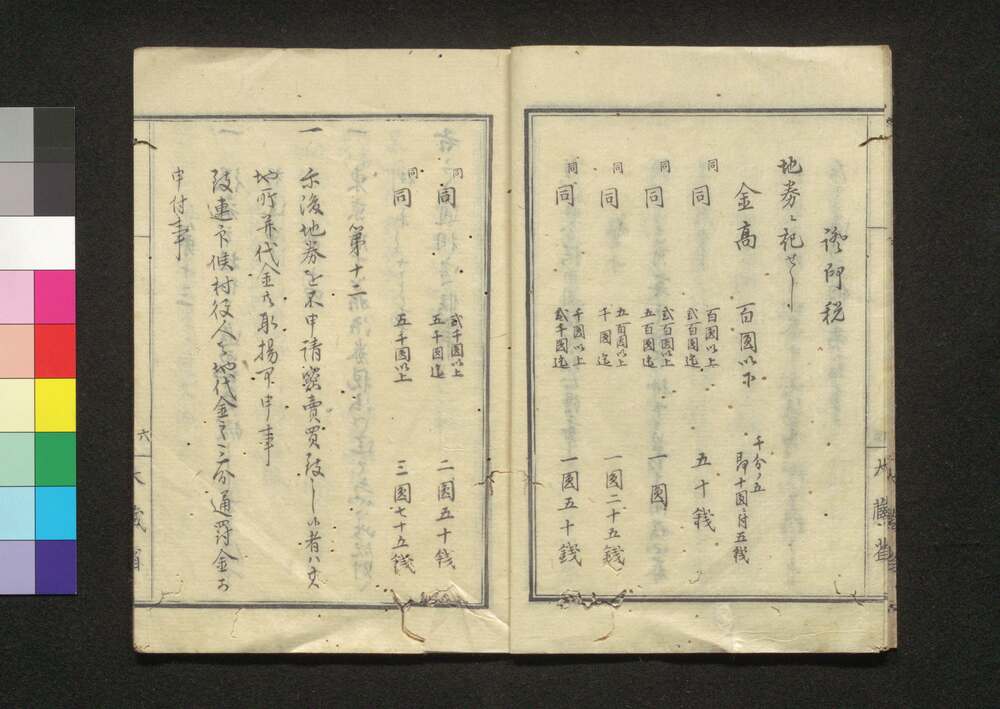 證印税
地券ニ記セシ
金高 百圓以下 千分ノ五 即十圓ニ付五銭
同 同 百圓以上 弐百圓迄 五十銭
同 同 弐百圓以上 五百圓迄 一圓
同 同 五百圓以上 千圓迄 一圓二十五銭
同 同 千圓以上 弐千圓迄 一圓五十銭
大蔵省
同 同 弐千圓以上 五千圓迄 二圓五十銭
同 同 五千圓以上 三圓七十五銭
第十二
一 尓後地券を不申請竊賣買致し候者ハ其
地所并代金共取揚可申事
致連印候村役人も地代金之三分通罰金可
申付事
六
大蔵省